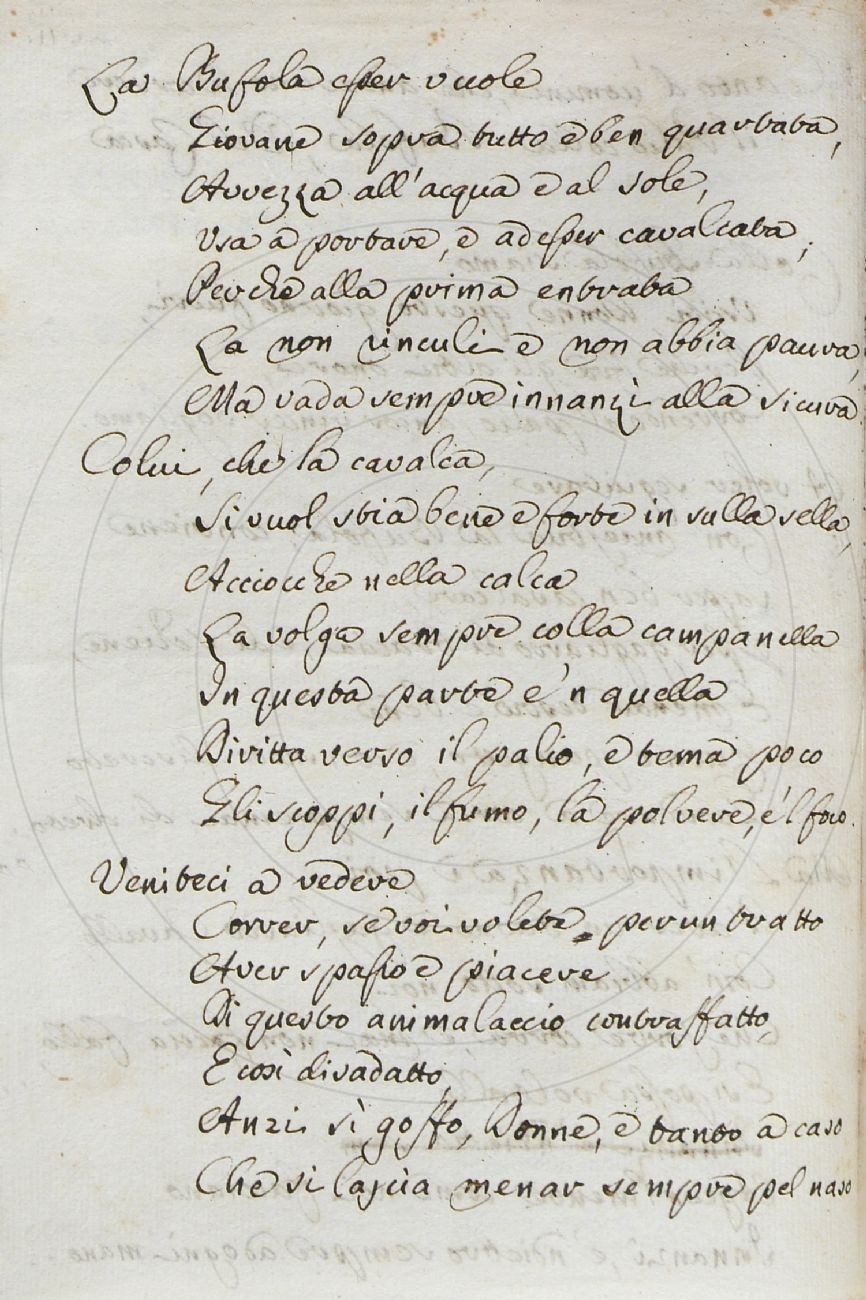 La Bufola esser vuole
Giovane sopra tutto e ben quartata,
Avvezza all'acqua e al sole,
Usa a portare, e ad esser cavalcata,
Perche alla prima entrata
La non rinculi e non abbia paura,
Ma vada sempre innanzi alla sicura
Colui, che la cavalca,
Si vuol stia bene e forte in sulla sella,
Acciocche nella calca
La volga sempre colla campanella
In questa parte e 'n quella
Diritta verso il palio, e tema poco
Gli scoppi, il fumo, la polvere, e 'l foco.
Veniteci a vedere
Correr, se voi volete per un tratto
Aver spasso e piacere
Di questo animalaccio contraffatto,
E così disadatto,
Anzi sì goffo, Donne, e tanto a caso
Che si lascia menar sempre pel naso